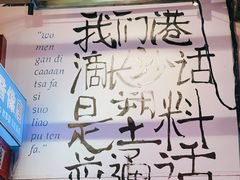 我们港
滴长沙话
是塑料
普通话
"wo
men
gan di
caaaan
tsa fa
si
suo
liao
pu ten
fa."